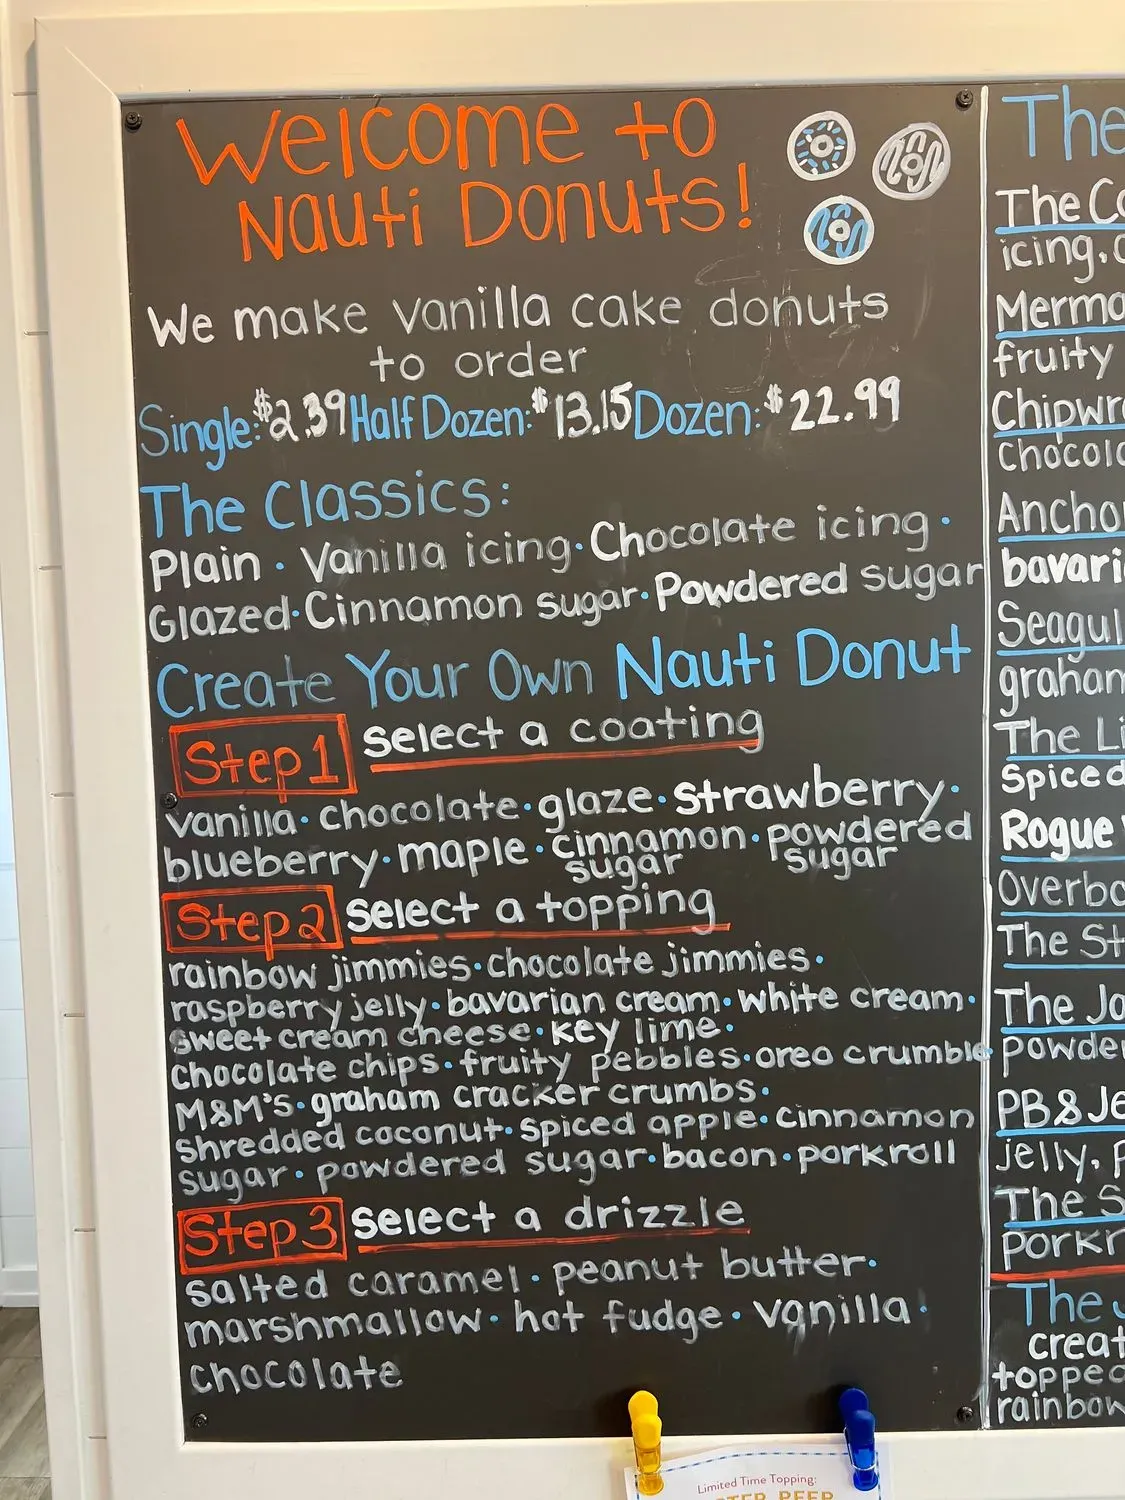 Welcome to
Nauti Donuts!
We make vanilla cake donuts
to order
Single: $2.39 Half Dozen: $13.15 Dozen: $22.99
The Classics:
Plain · Vanilla icing · Chocolate icing ·
Glazed · Cinnamon sugar · Powdered sugar
Create Your Own Nauti Donut
Step 1 select a coating
vanilla · chocolate · glaze · strawberry ·
blueberry · maple · cinnamon sugar · powdered sugar
Step 2 select a topping
rainbow jimmies · chocolate jimmies ·
raspberry jelly · bavarian cream · white cream ·
sweet cream cheese · key lime ·
chocolate chips · fruity pebbles · oreo crumble ·
M&M's · graham cracker crumbs ·
shredded coconut · spiced apple · cinnamon
sugar · powdered sugar · bacon · porkroll
Step 3 select a drizzle
salted caramel · peanut butter ·
marshmallow · hot fudge · vanilla ·
chocolate
The
The Co
icing, c
Merma
fruity
Chipwr
Chocola
Anchor
bavari
Seagul
graham
The Li
Spiced
Rogue
Overbo
The St
The Jo
powder
PB&Je
jelly, p
The S
porkr
The
creat
topped
rainbow
Limited Time Topping: